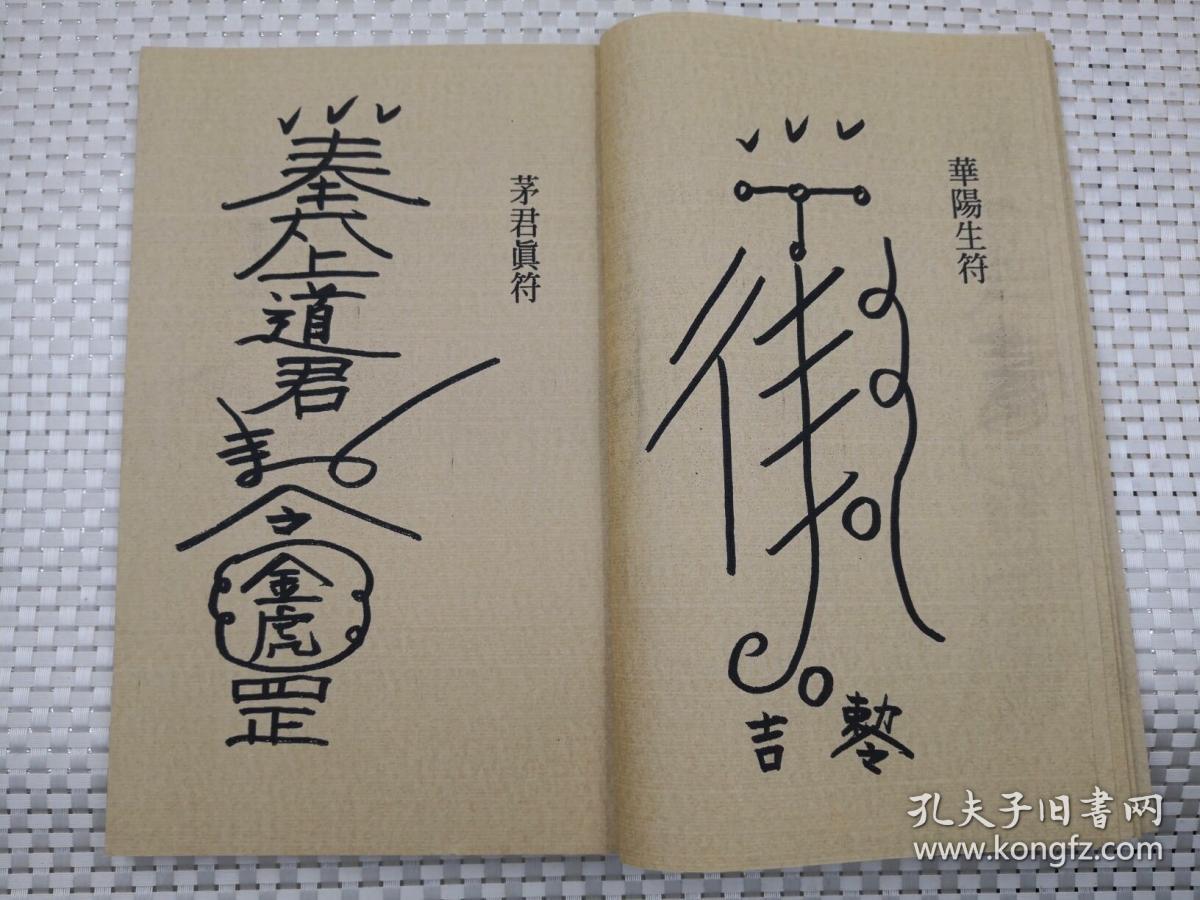 華陽生符
吉
勅令
茅君眞符
奉
太上
道
君
令
金
虎
罡
孔夫子旧書网
www.kongfz.com